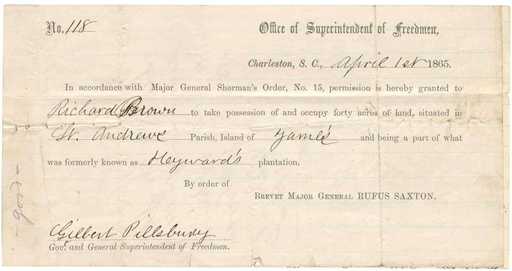 No. 118
Office of Superintendent of Freedmen,
Charleston, S. C. April 1st 1865.
In accordance with Major General Sherman's Order, No. 15, permission is hereby granted to
Richard Brown to take possession of and occupy forty acres of land, situated in
St. Andrews Parish, Island of James and being a part of what
was formerly known as Heyward's plantation.
By order of
Brevet Major General RUFUS SAXTON.
Gilbert Pillsbury
Gov. and General Superintendent of Freedmen.